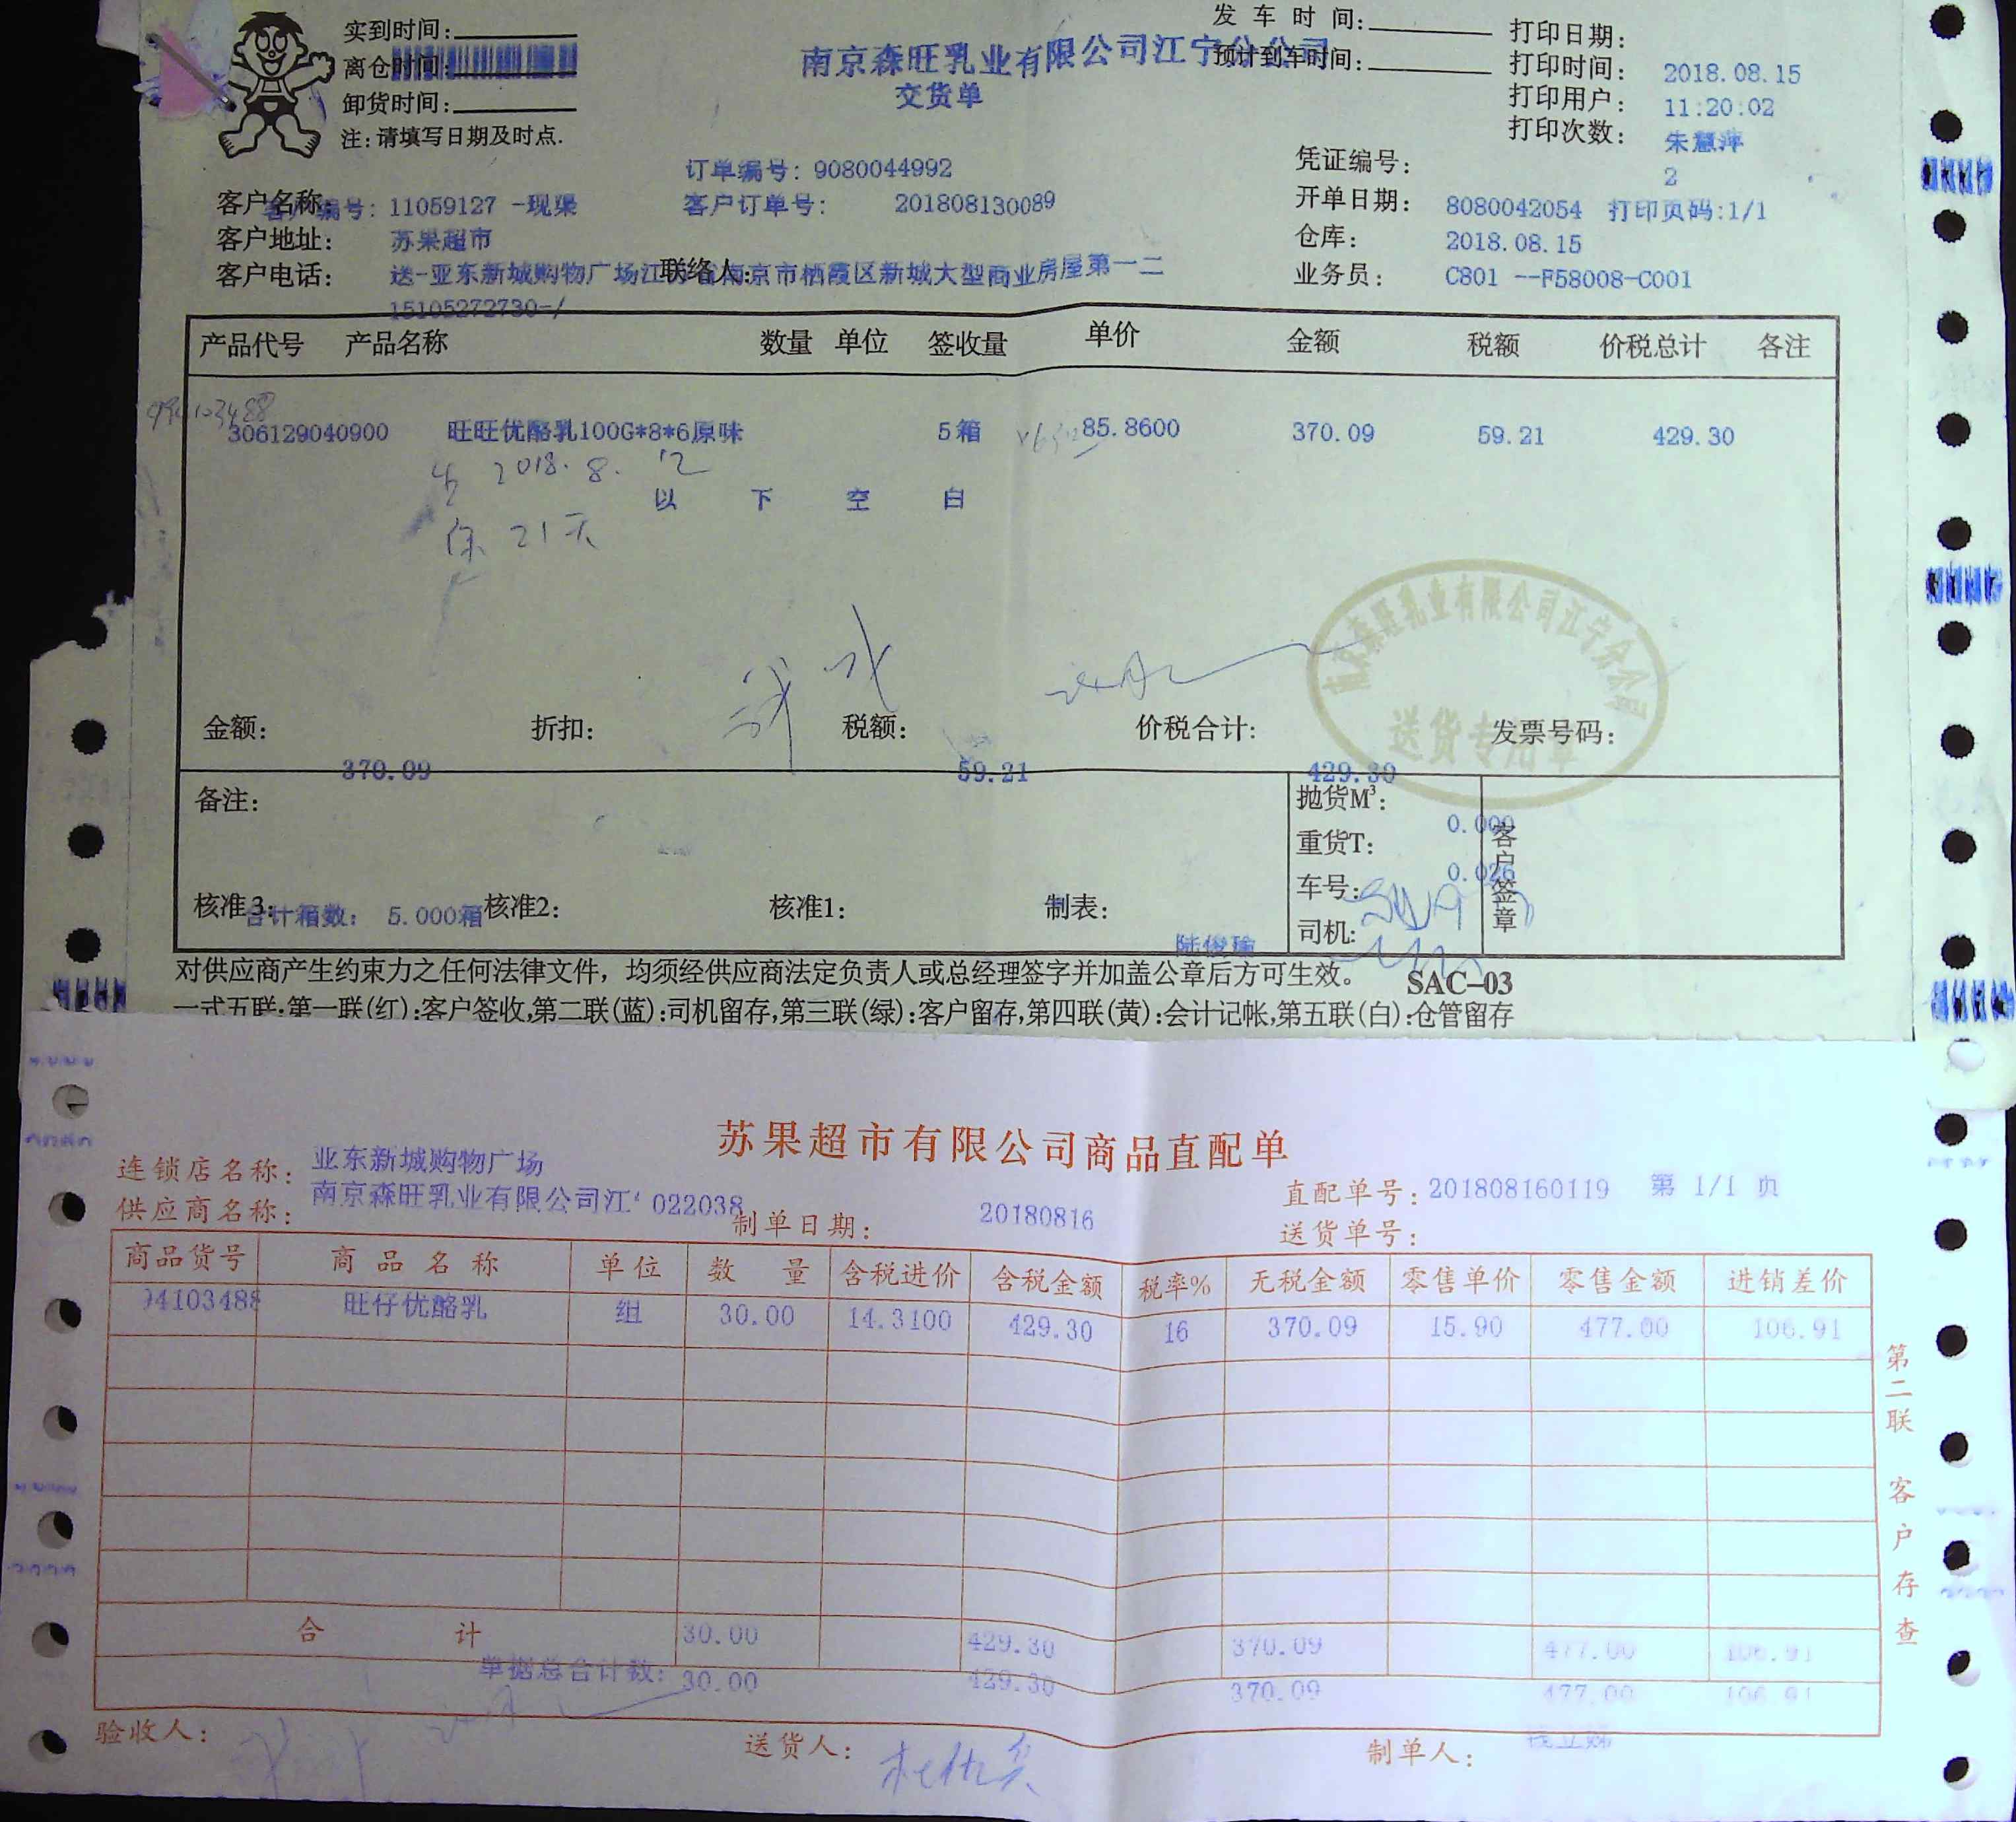 实到时间:
离仓时间:
卸货时间:
注:请填写日期及时点.
南京森旺乳业有限公司江宁分公司
交货单
发车时间:
预计到车时间:
打印日期: 2018.08.15
打印时间: 11:20:02
打印用户: 朱慧萍
打印次数: 2
订单编号: 9080044992
客户订单号: 201808130089
凭证编号: 8080042054 打印页码:1/1
开单日期: 2018.08.15
仓库: C801 --F58008-C001
业务员:
客户编号: 11059127 -现渠
客户名称: 苏果超市
客户地址: 送-亚东新城购物广场江苏省南京市栖霞区新城大型商业房屋第一二
客户电话: 15105272730-/
联络人:
产品代号 产品名称 数量 单位 签收量 单价 金额 税额 价税总计 各注
94103488
306129040900 旺旺优酪乳100G*8*6原味 5箱 85.8600 370.09 59.21 429.30
2018.8.12
以 下 空 白
保 21天
南京森旺乳业有限公司江宁分公司
送货专用章
金额: 折扣: 税额: 价税合计: 发票号码:
370.09 59.21 429.30
备注:
抛货M³: 0.000
重货T: 0.026
车号:
司机:
客户签章
核准3: 核准2: 核准1: 制表:
合计箱数: 5.000箱
陆俊瑜
对供应商产生约束力之任何法律文件，均须经供应商法定负责人或总经理签字并加盖公章后方可生效。 SAC-03
一式五联:第一联(红):客户签收,第二联(蓝):司机留存,第三联(绿):客户留存,第四联(黄):会计记帐,第五联(白):仓管留存
苏果超市有限公司商品直配单
连锁店名称: 亚东新城购物广场
供应商名称: 南京森旺乳业有限公司江 022038
制单日期: 20180816
直配单号: 201808160119 第 1/1 页
送货单号:
商品货号 商品名称 单位 数量 含税进价 含税金额 税率% 无税金额 零售单价 零售金额 进销差价
94103488 旺仔优酪乳 组 30.00 14.3100 429.30 16 370.09 15.90 477.00 106.91
合计 30.00 429.30 370.09 477.00 106.91
单据总合计数: 30.00 429.30 370.09 477.00 106.91
第二联 客户存查
验收人: 送货人: 制单人: